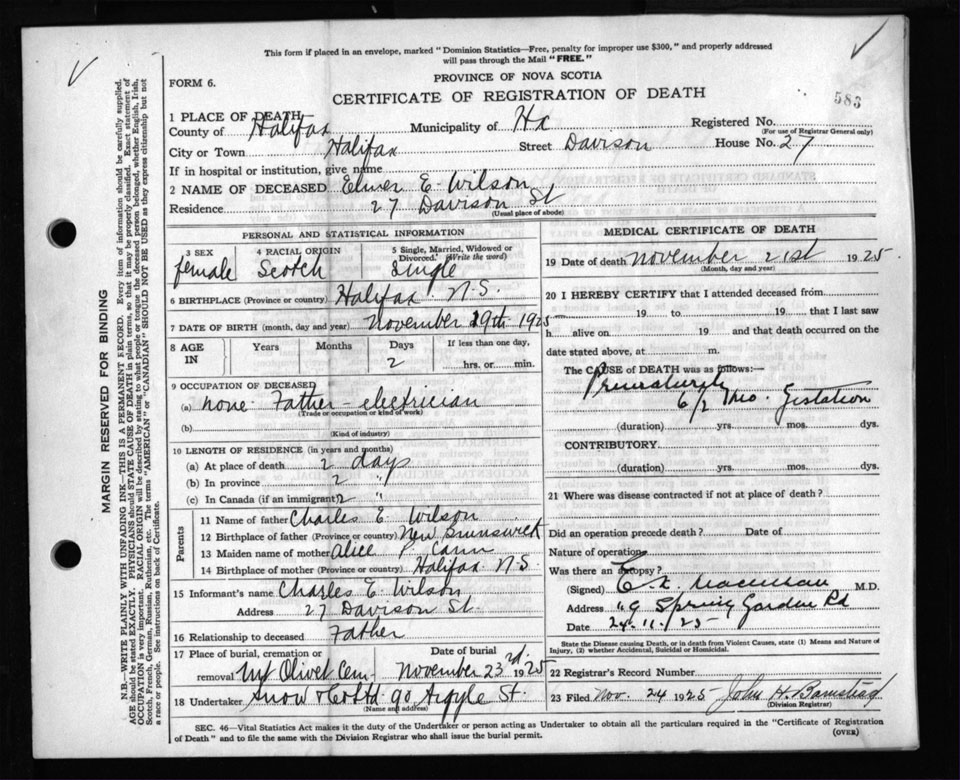 This form if placed in an envelope, marked "Dominion Statistics—Free, penalty for improper use $300," and properly addressed
will pass through the Mail "FREE."
FORM 6.
PROVINCE OF NOVA SCOTIA
CERTIFICATE OF REGISTRATION OF DEATH
583
1 PLACE OF DEATH
County of Halifax Municipality of Hx Registered No.
(For use of Registrar General only)
City or Town Halifax Street Davison House No. 27
If in hospital or institution, give name
2 NAME OF DECEASED Elmer E. Wilson
Residence 27 Davison St
(Usual place of abode)
PERSONAL AND STATISTICAL INFORMATION
3 SEX female
4 RACIAL ORIGIN Scotch
5 Single, Married, Widowed or Divorced. (Write the word) Single
6 BIRTHPLACE (Province or country) Halifax N.S.
7 DATE OF BIRTH (month, day and year) November 19th 1925
8 AGE IN Years Months Days 2 If less than one day, hrs. or min.
9 OCCUPATION OF DECEASED
(a) none Father - electrician
(Trade or occupation or kind of work)
(b)
(Kind of industry)
10 LENGTH OF RESIDENCE (in years and months)
(a) At place of death 2 days
(b) In province 2 "
(c) In Canada (if an immigrant) 2 "
Parents
11 Name of father Charles E. Wilson
12 Birthplace of father (Province or country) New Brunswick
13 Maiden name of mother Alice P.
14 Birthplace of mother (Province or country) Halifax N.S.
15 Informant's name Charles E. Wilson
Address 27 Davison St.
16 Relationship to deceased Father
17 Place of burial, cremation or removal Mt Olivet Cem
Date of burial November 23rd 1925
18 Undertaker Snow & Co Ltd 90 Argyle St.
(Name and address)
MEDICAL CERTIFICATE OF DEATH
19 Date of death November 21st 1925
(Month, day and year)
20 I HEREBY CERTIFY that I attended deceased from
19 to 19 that I last saw
h alive on 19 and that death occurred on the
date stated above, at m.
The CAUSE OF DEATH was as follows:—
6 1/2 mo. Gestation
(duration) yrs. mos. dys.
CONTRIBUTORY
(duration) yrs. mos. dys.
21 Where was disease contracted if not at place of death?
Did an operation precede death? Date of
Nature of operation
Was there an autopsy?
(Signed) M.D.
Address Spring Garden Rd
Date 24.11.25
State the Disease causing Death, or in death from Violent Causes, state (1) Means and Nature of
Injury, (2) whether Accidental, Suicidal or Homicidal.
22 Registrar's Record Number
23 Filed Nov. 24 1925 John H. Barnstead
(Division Registrar)
SEC. 46—Vital Statistics Act makes it the duty of the Undertaker or person acting as Undertaker to obtain all the particulars required in the "Certificate of Registration
of Death" and to file the same with the Division Registrar who shall issue the burial permit.
(OVER)
MARGIN RESERVED FOR BINDING
N.B.—WRITE PLAINLY WITH UNFADING INK—THIS IS A PERMANENT RECORD. Every item of information should be carefully supplied.
AGE should be stated EXACTLY. PHYSICIANS should STATE CAUSE OF DEATH in plain terms, so that it may be properly classified. Exact statement of
OCCUPATION is very important. RACIAL ORIGIN will be described by stating to what people or tongue the deceased person belonged, whether English, Irish,
Scotch, French, German, Russian, Ruthenian, etc. The terms "AMERICAN" or "CANADIAN" SHOULD NOT BE USED as they express citizenship but not
a race or people. See instructions on back of Certificate.